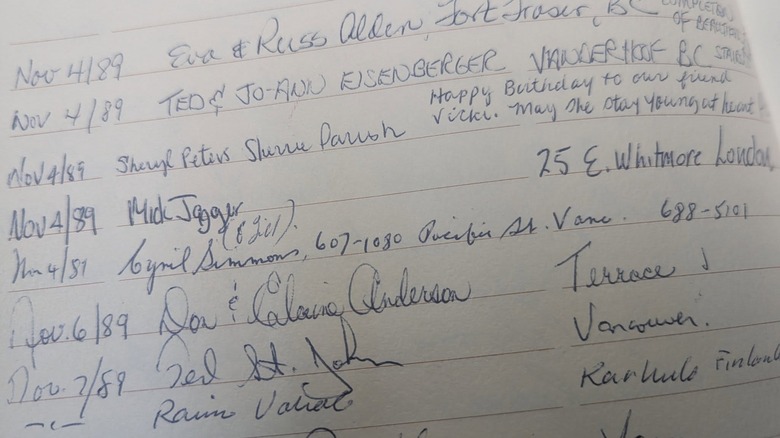 Nov 4/89 Eva & Russ Alden, Fort Fraser, BC COMPLETION OF BEAUTIFUL
Nov 4/89 TED & JO-ANN EISENBERGER VANDERHOOF BC
Happy Birthday to our friend
Nov 4/89 Sheryl Peters Sherrie Parrish Vicki. May she stay young at heart
Nov 4/89 Mick Jagger 25 E. Whitmore London
4/89 Cyril Simmons, 607-1080 Pacific St. Vanc. 688-5101
Nov. 6/89 Don & Elaine Anderson Terrace
Nov. 7/89 Ted St. John Vancouver.
-"- Karhula Finland